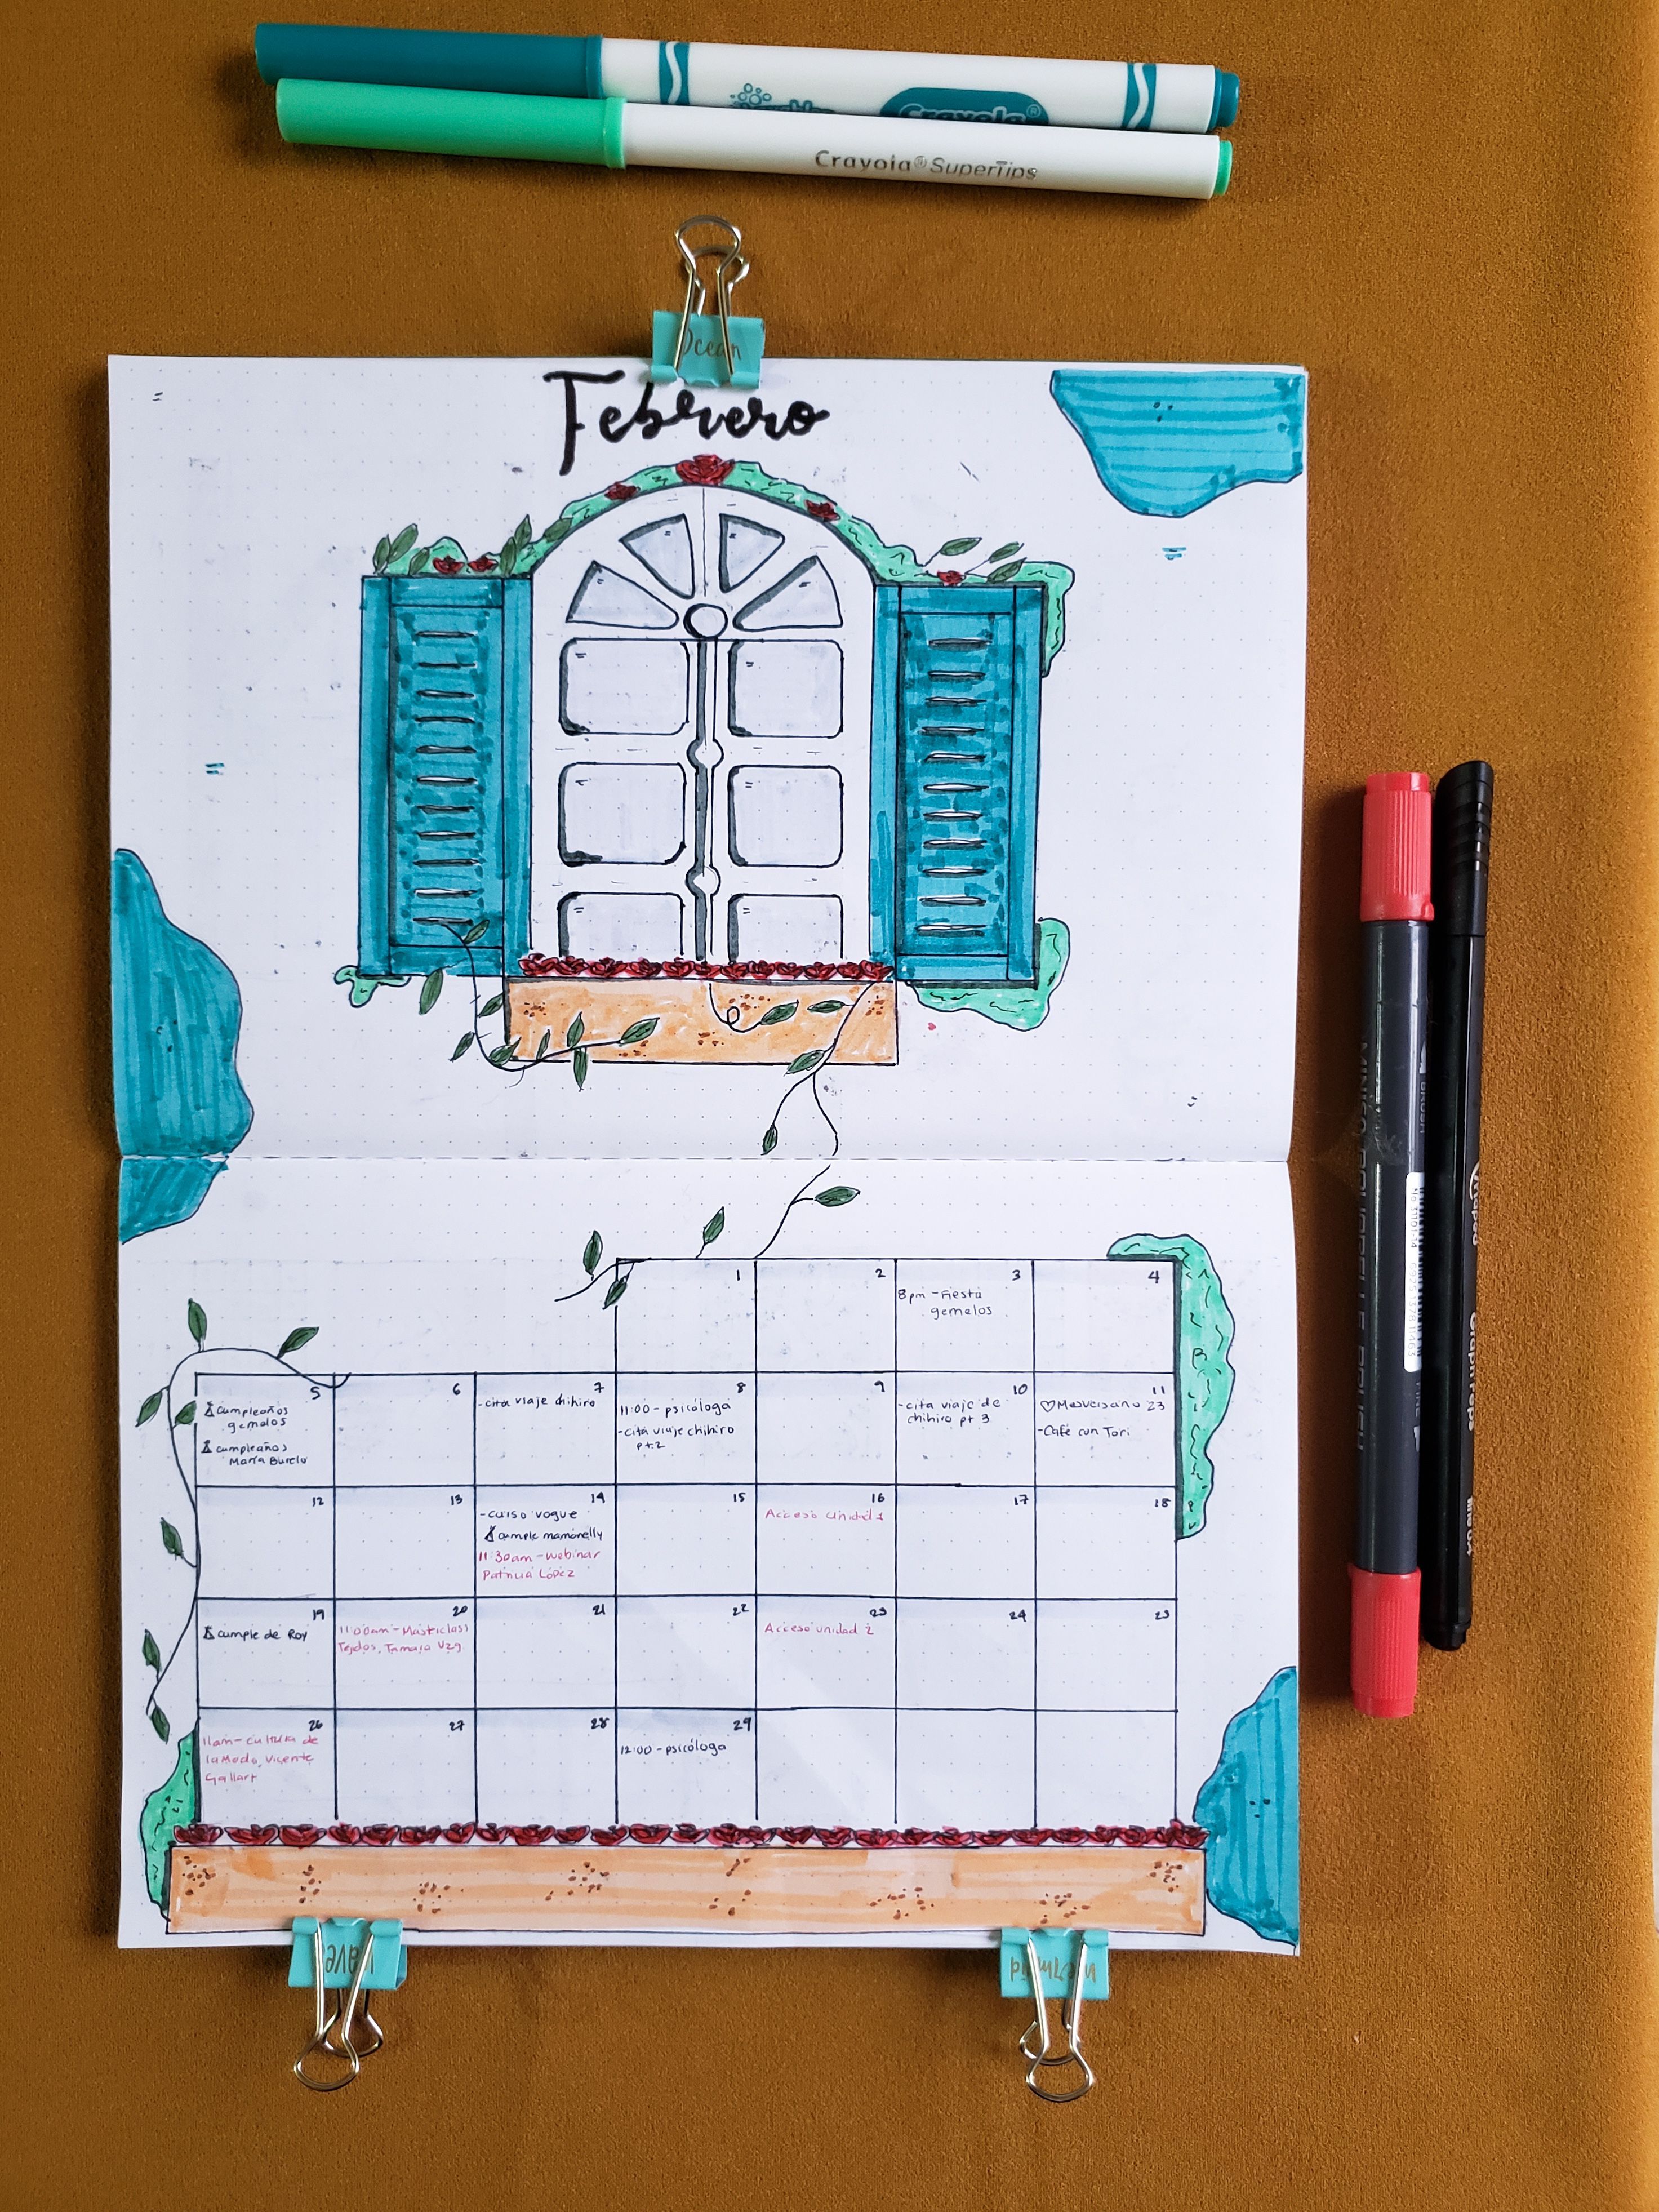 Crayola
Crayola® SuperTips
Ocean
Febrero
1
2
3
8pm - Fiesta
gemelos
4
5
cumpleaños
gemelos
cumpleaños
María Burelo
6
7
-cita viaje chihiro
8
11:00 - psicóloga
-cita viaje chihiro
pt.2
9
10
-cita viaje de
chihiro pt 3
11
♡Mesversario 23
-Café con Tori
12
13
14
-curso vogue
cumple mamanelly
11:30am - Webinar
Patricia López
15
16
Acceso unidad 1
17
18
19
cumple de Roy
20
11:00am - Masticlass
Tejidos, Tamara Uzg
21
22
23
Acceso unidad 2
24
25
26
11am - cultura de
la Moda, Vicente
Gallart
27
28
29
12:00 - psicóloga
wave
mermaid
BRUSH
Maped
Graph'Peps
fine 0.4